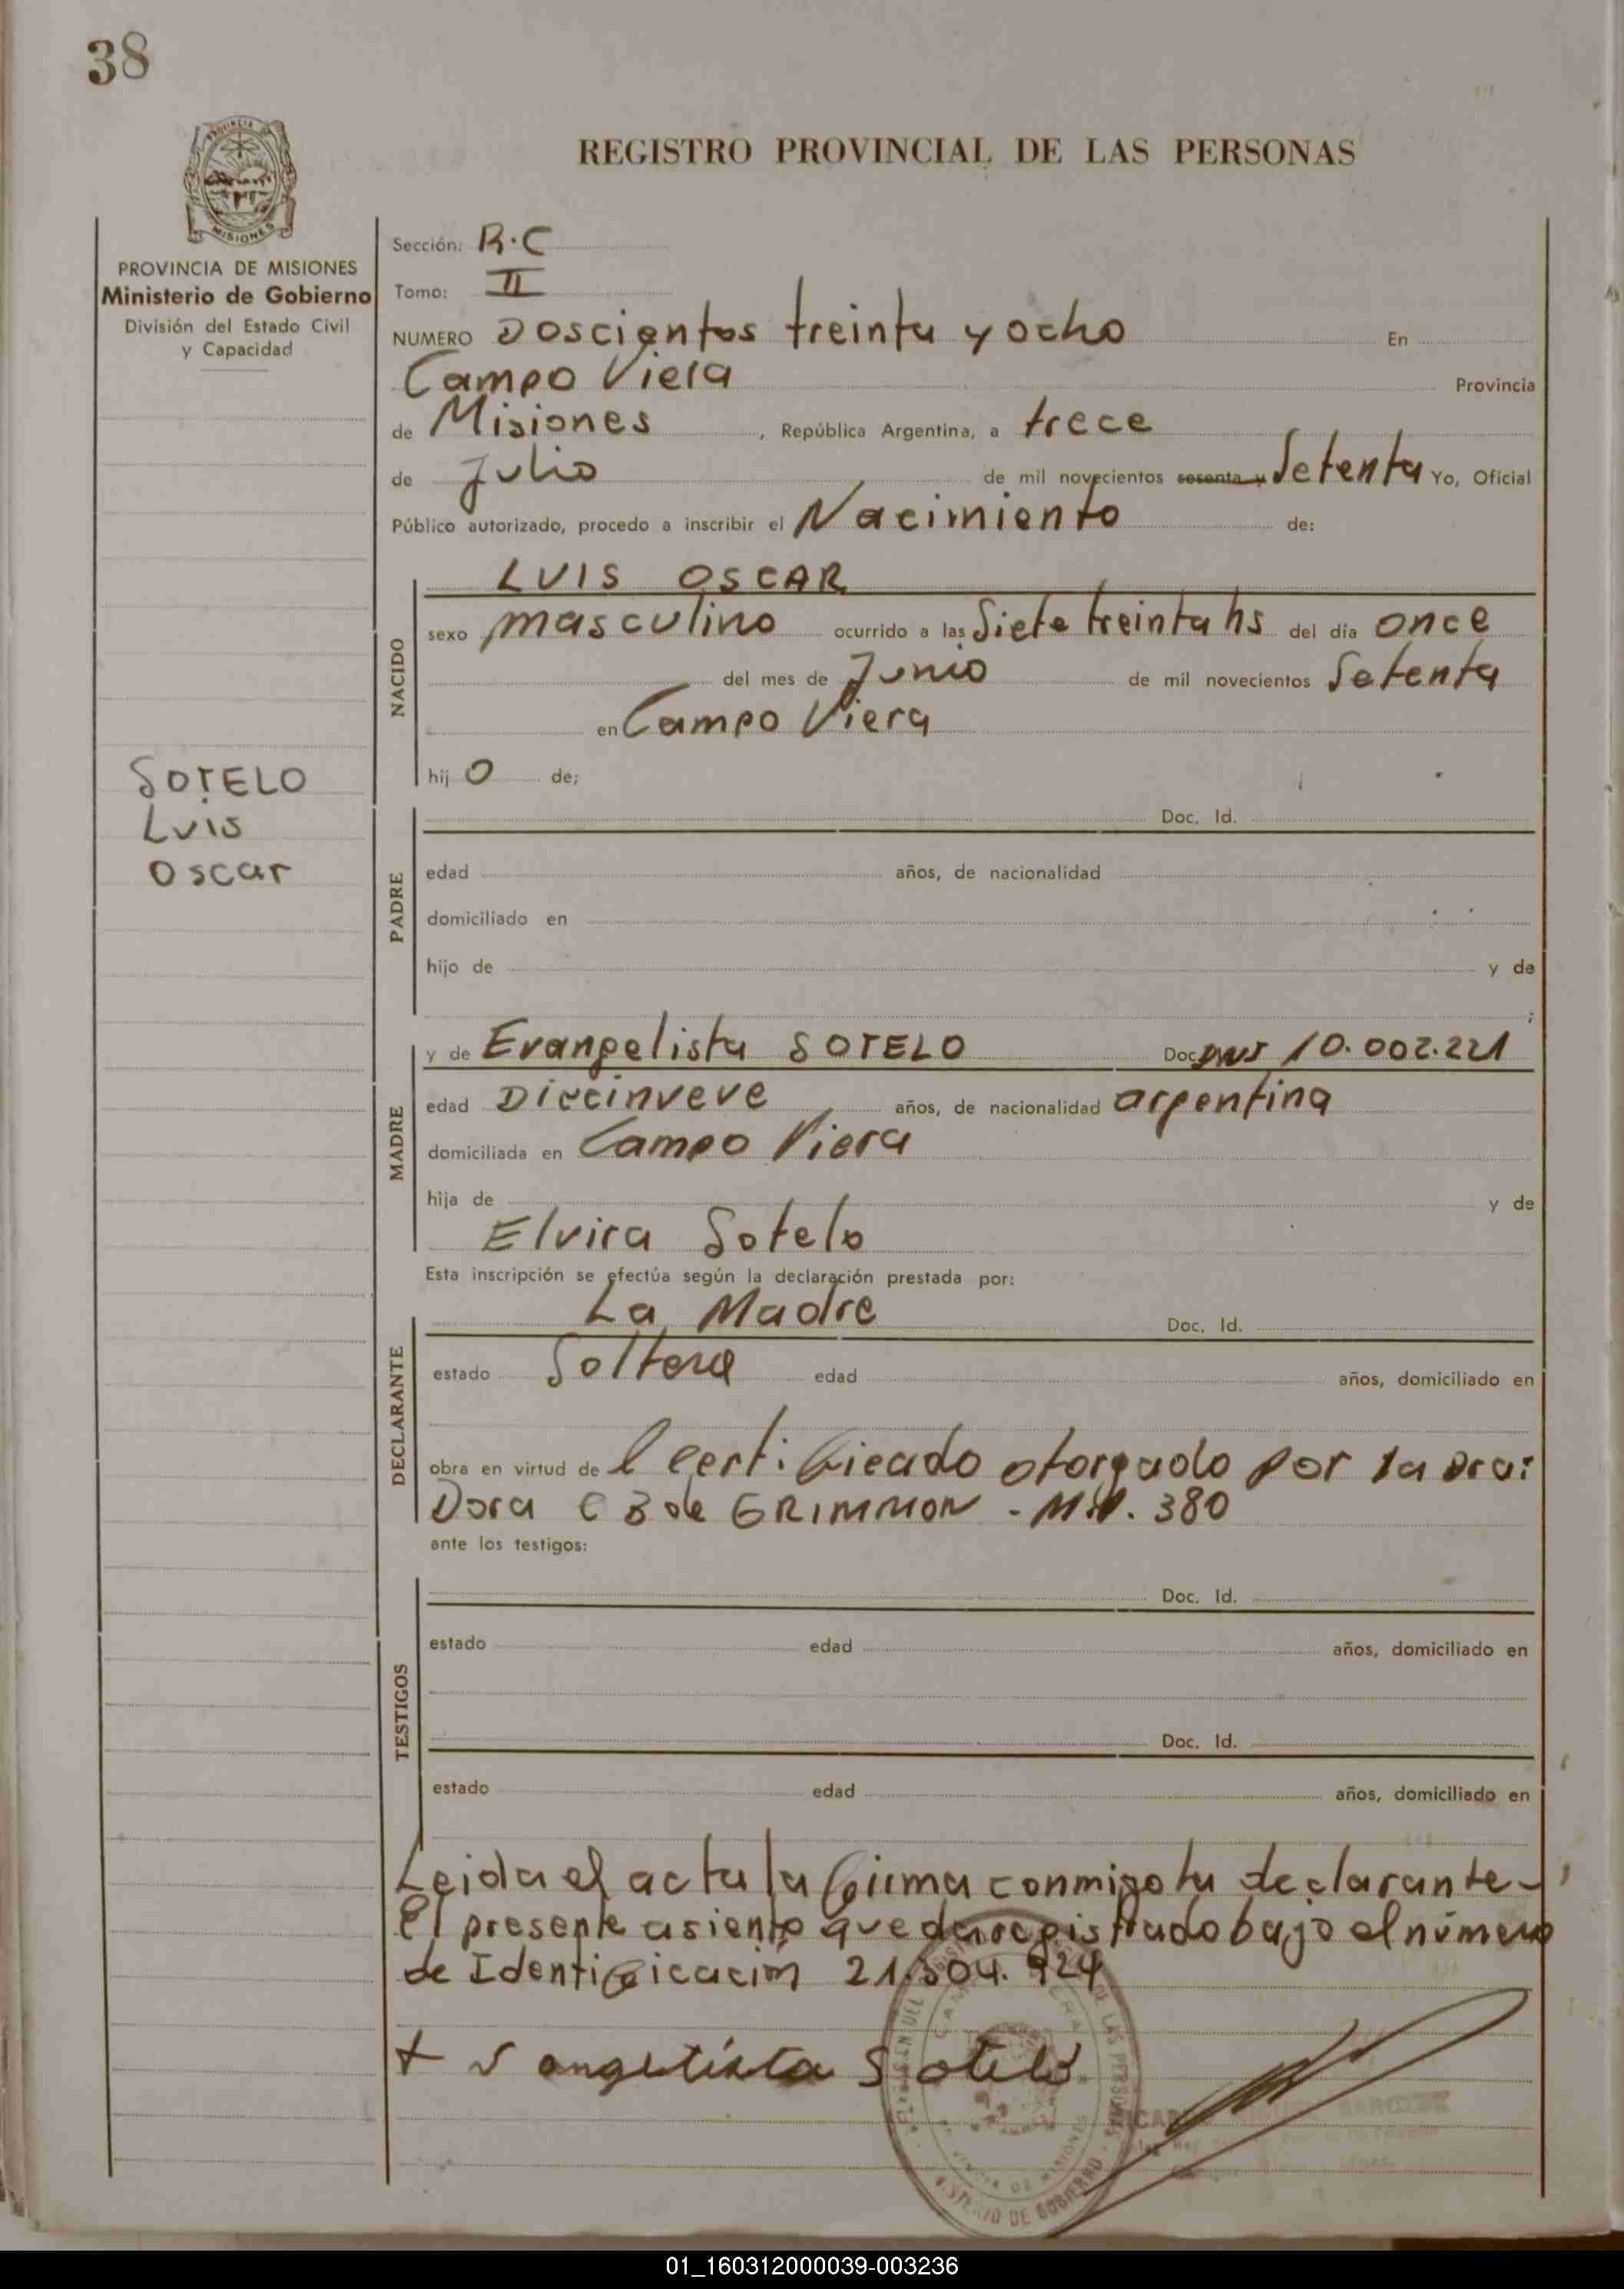 38
REGISTRO PROVINCIAL DE LAS PERSONAS
PROVINCIA DE
MISIONES
PROVINCIA DE MISIONES
Ministerio de Gobierno
División del Estado Civil
y Capacidad
Sección: R.C
Tomo: II
NUMERO Doscientos treinta y ocho En
Campo Viera Provincia
de Misiones, República Argentina, a trece
de Julio de mil novecientos sesenta y Setenta Yo, Oficial
Público autorizado, procedo a inscribir el Nacimiento de:
NACIDO
LUIS OSCAR
sexo masculino ocurrido a las Siete treinta hs del día once
del mes de Junio de mil novecientos Setenta
en Campo Viera
hij o de;
SOTELO
Luis
Oscar
PADRE
Doc. Id.
edad años, de nacionalidad
domiciliado en
hijo de y de
;
MADRE
y de Evangelista SOTELO Doc DNI 10.002.221
edad Diecinueve años, de nacionalidad argentina
domiciliada en Campo Viera
hija de y de
Elvira Sotelo
Esta inscripción se efectúa según la declaración prestada por:
DECLARANTE
La Madre Doc. Id.
estado Soltera edad años, domiciliado en
obra en virtud de l certificado otorgado por la Dra:
Dora C B de GRIMMON - M.P. 380
ante los testigos:
TESTIGOS
Doc. Id.
estado edad años, domiciliado en
Doc. Id.
estado edad años, domiciliado en
Leida el acta la firma conmigo la declarante -
El presente asiento queda registrado bajo el número
de Identificación 21.304.924
+ Vangelista Sotelo
DE LAS PERSONAS
PROVINCIA DE MISIONES
MINISTERIO DE GOBIERNO
01_160312000039-003236